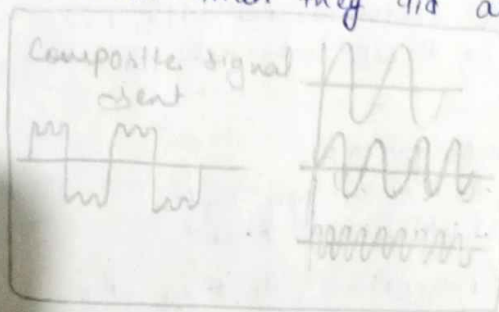 they
Composite signal
sent